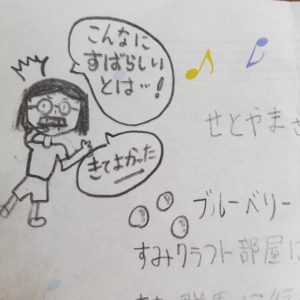 こんなに
すばらしい
とは…!
きてよかった
せとやまさ
ブルーベリー
すみクラフト部屋に